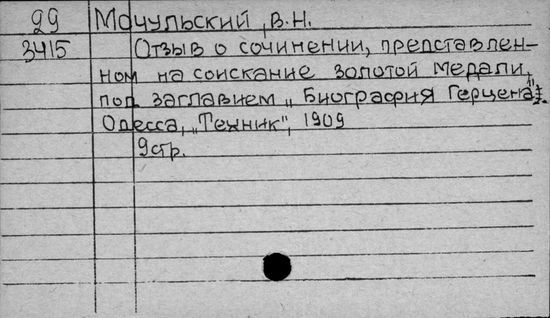 99 Мочульский, В.Н.
3415 Отзыв о сочинении, представлен-
ном на соискание золотой медали,
под заглавием „Биография Герцена".
Одесса, „Техник", 1909
9стр.